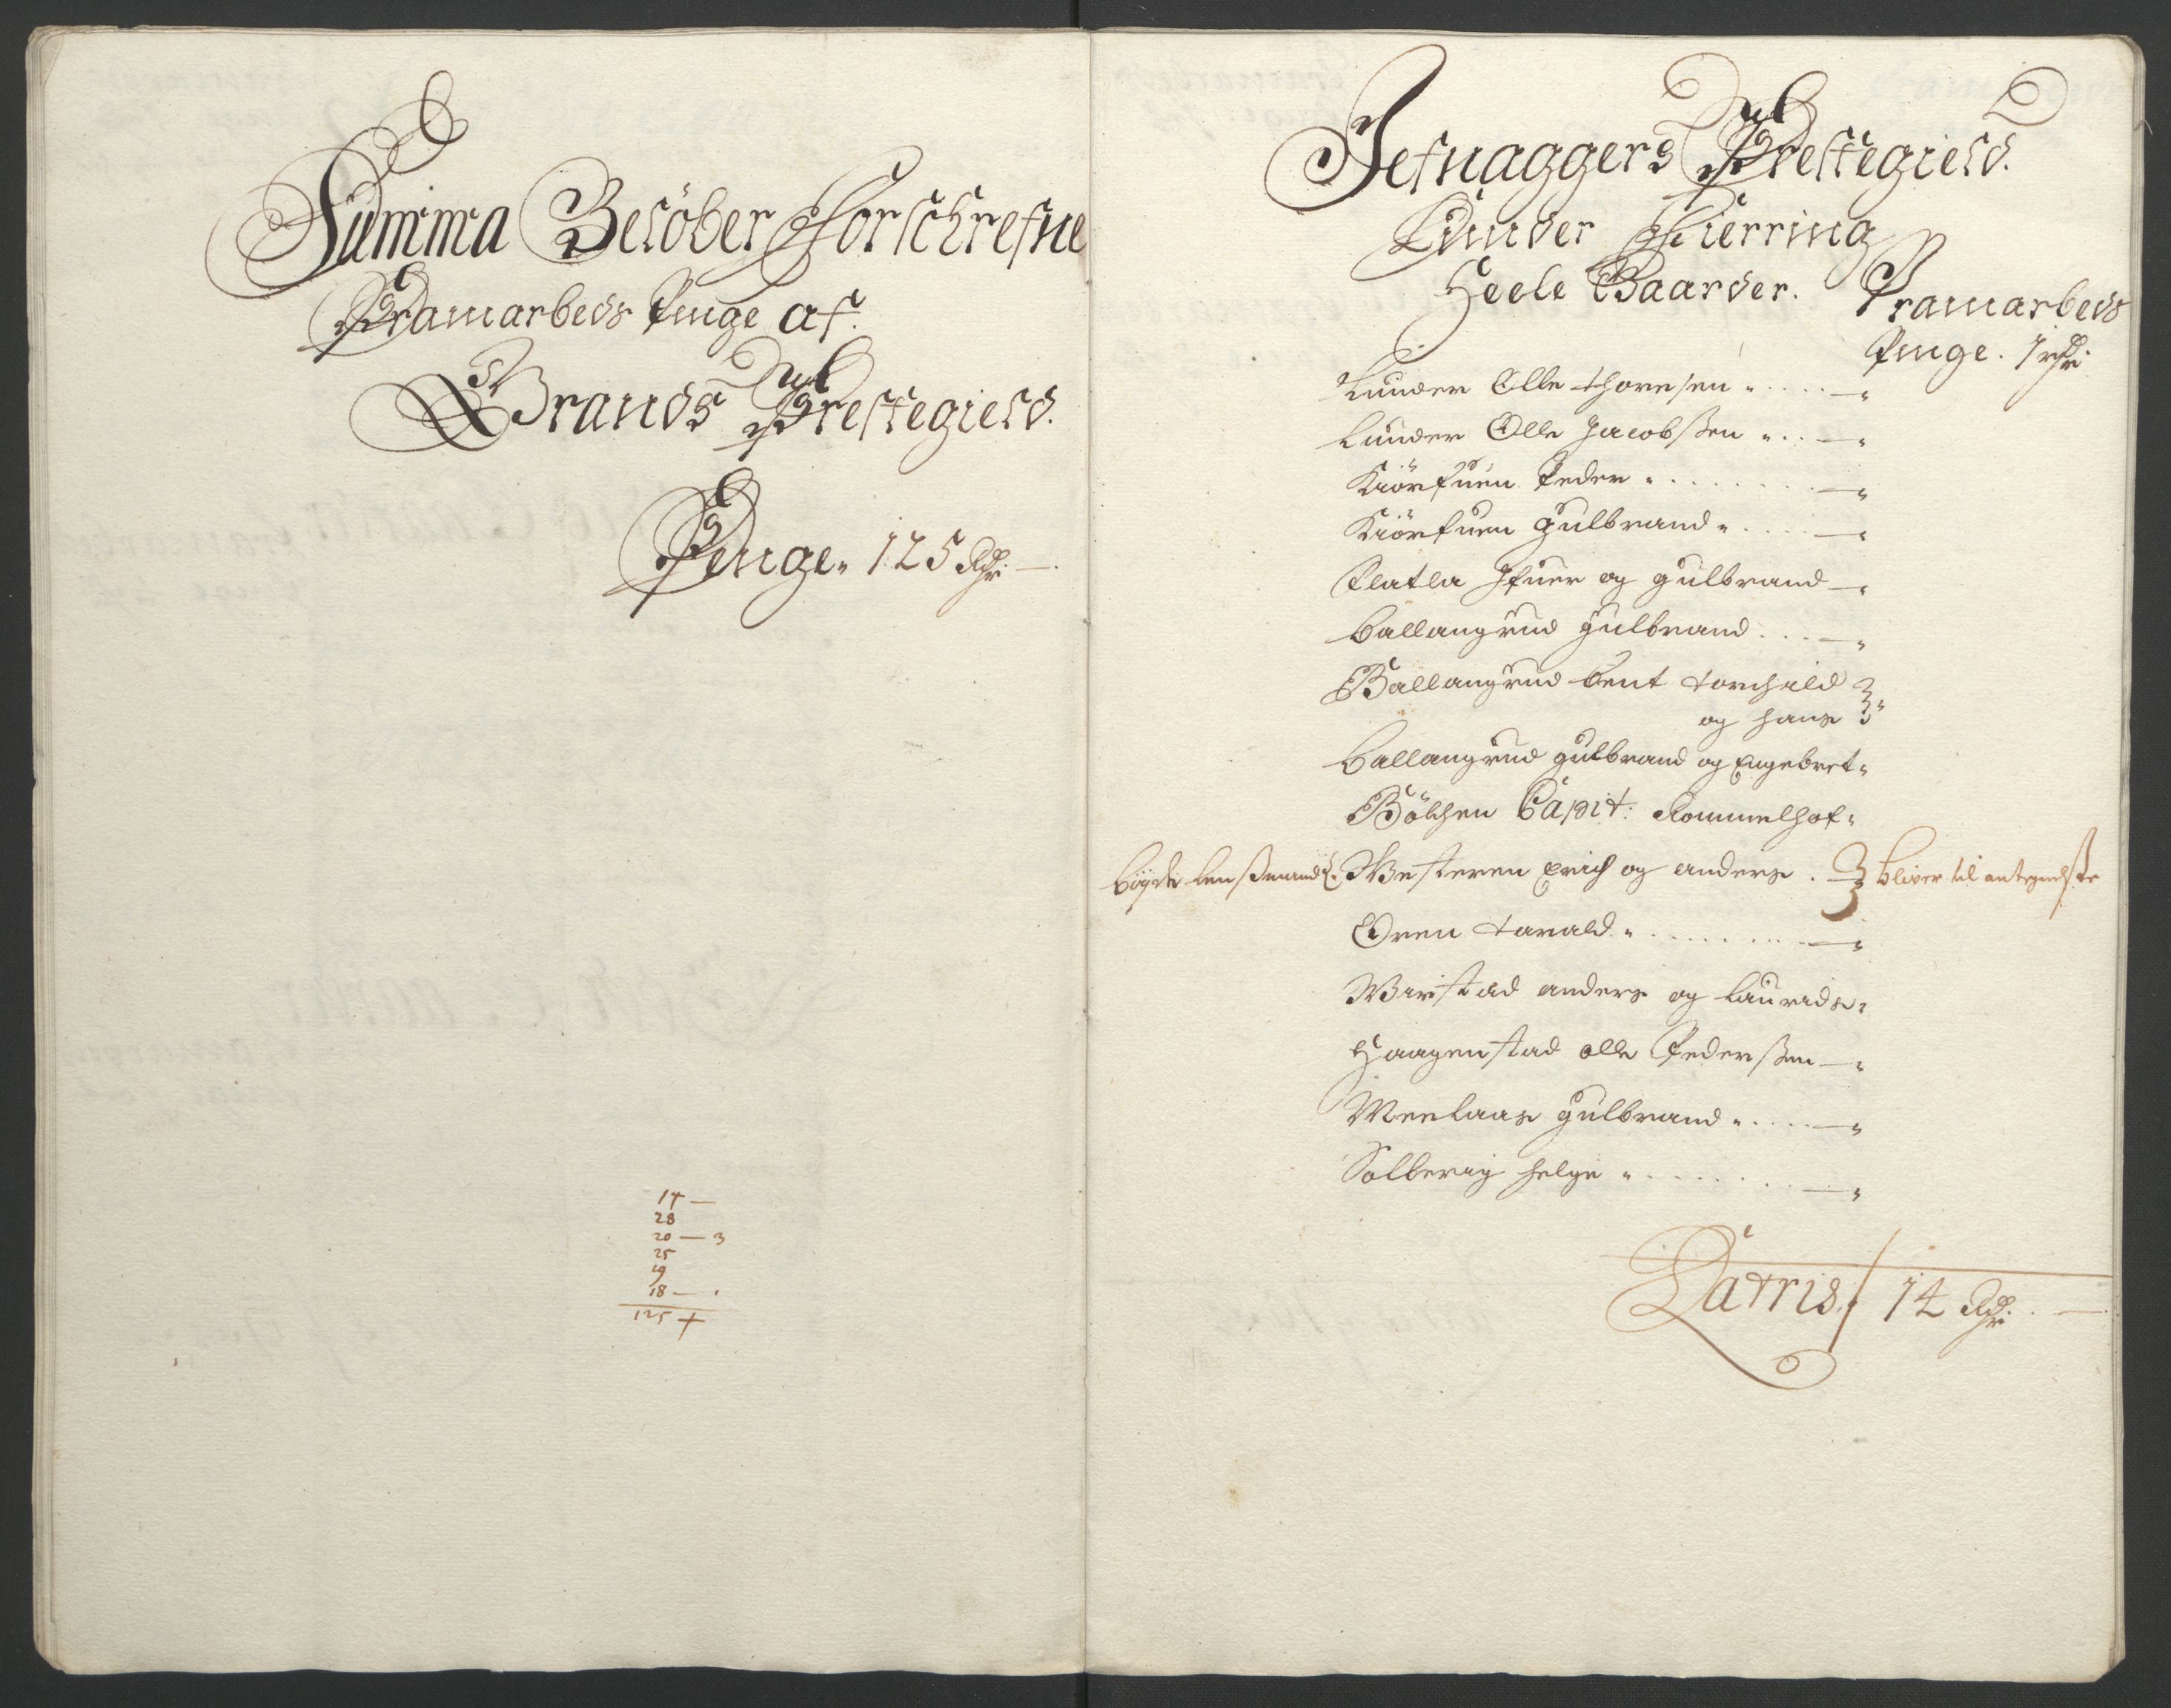 Summa Belöber Forschrefne
Pramarbeds Penge af.
Grands Prestegield.
Penge. 125 Rdr. —
14 —
28
20 — 3
25
19
18 — .
125 +
Jefnaggers Prestegield.
Lunder Fierring
Heele Gaarder.
Pramarbeds
Penge. 1 rdr
Lunder Olle Thoresen . . . . —"
Lunder Olle Jacobsßen " . . —"
Kiörfuen Peder " . . . . . . . —"
Kiörfuen Gulbrand " . . . . —"
Klatla Ifuer og Gulbrand —"
Ballangrud Gulbrand . . . —"
Ballangrud Bent Torchild
og Hans "
Ballangrud Gulbrand og Engebret "
Bölchen Capit: Rommelhof "
bøyde lensßmand Westeren Erich og Anders . — bliver til antegnelße
Oren Tarald " . . . . . . . . —"
Wirstad Anders og Laurids "
Haagenstad Olle Pedersßen —"
Meelaas Gulbrand " . . . . —"
Solberrig Helge " . . . . . . . —"
Latris / 14 Rdr. . —